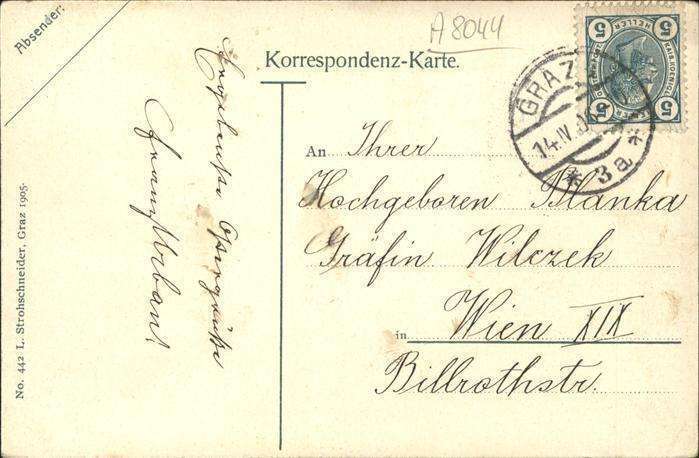 Absender:
A 8044
Korrespondenz-Karte.
5 HELLER 5
5 5
GRAZ
14.IV.
* 3a *
An Ihrer
Hochgeboren Blanka
Gräfin Wilczek
in Wien XIX
Billrothstr.
Ergebenste Ostergrüße
Franz Urban
No. 442 L. Strohschneider, Graz 1905.